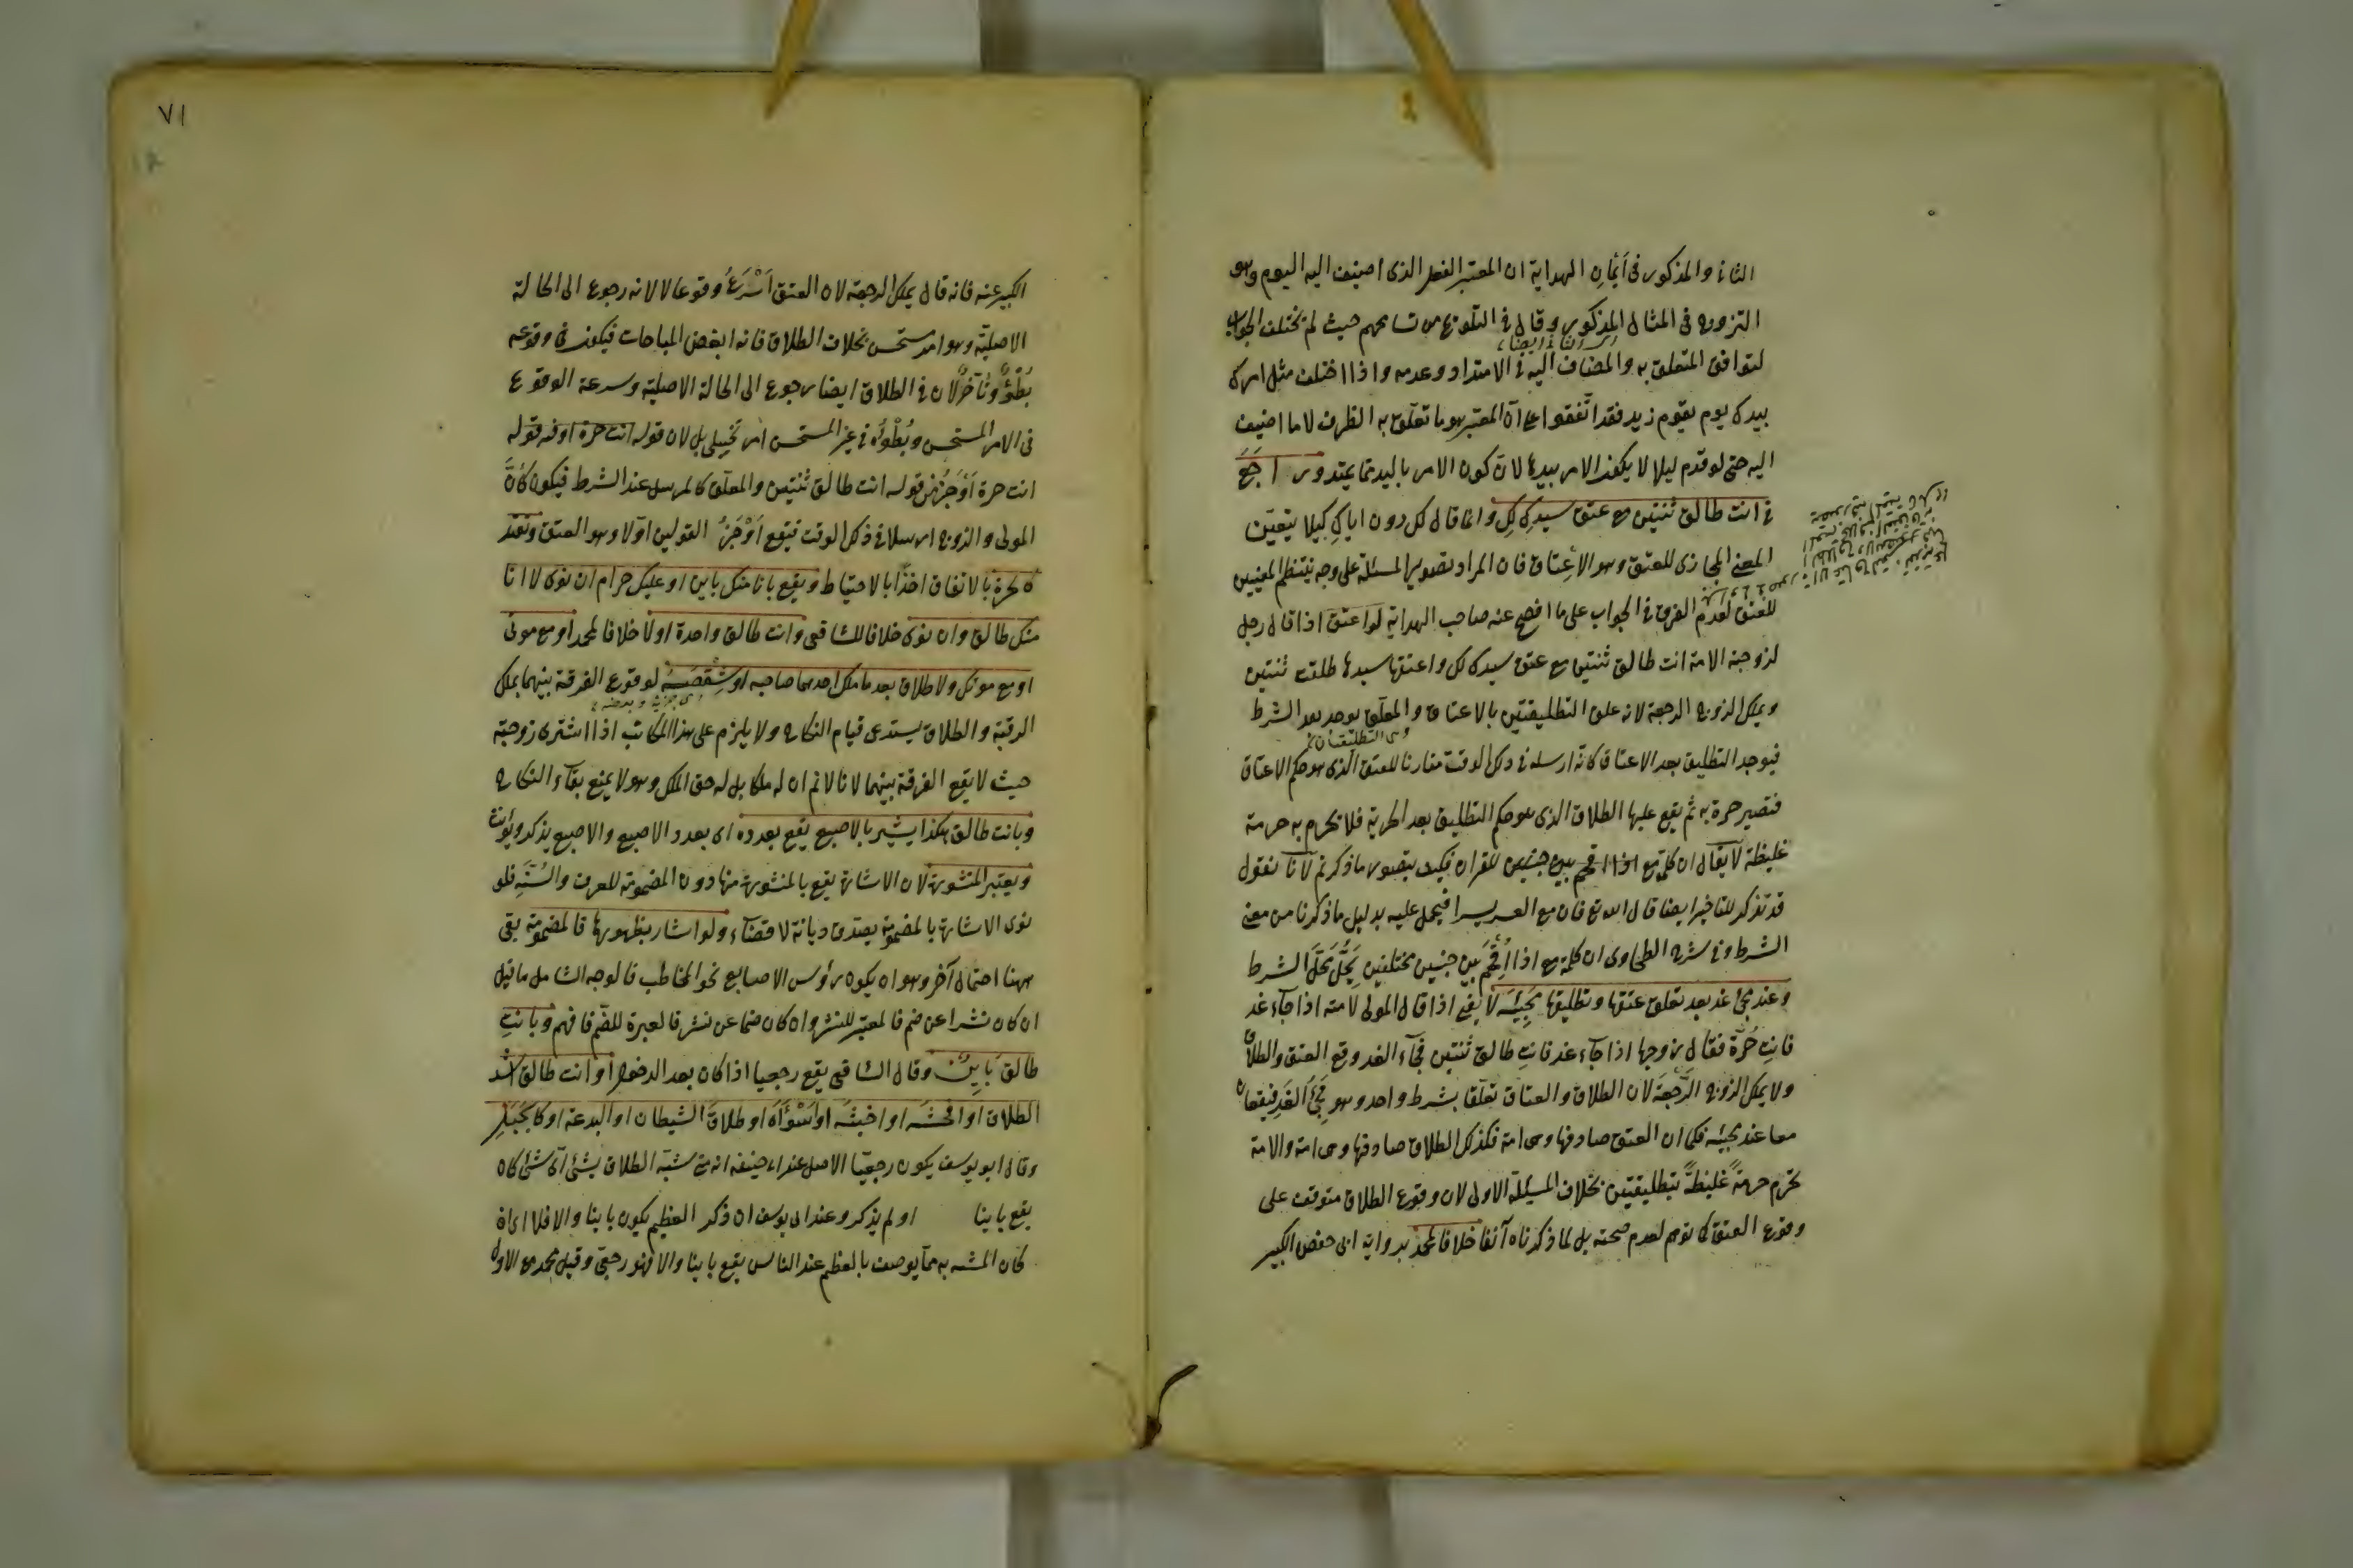 الثاني والمذكور في أيمان الهداية ان المعتبر الفعل الذى اضيف اليه اليوم وهو
التزوج فى المثال المذكور وقال فى التلويح من تسامحهم حيث لم يختلف الجواب
لتوافق المتعلق به والمضاف اليه فى الامتداد وعدمه واذا اختلف مثل امرك
بيدك يوم يقوم زيد فقد اتّفقوا على انّ المعتبر هو ما تعلّق به الظرف لا ما اضيف
اليه حتى لو قدم ليلا لا يكون الامر بيدها لانّ كون الامر باليد مما يمتد
فى انت طالق ثنتين مع عتق سيدكِ لكِ وانما قال لك دون اياكِ كيلا يتعيّن
المعنى المجازى للعتق وهو الأعتاق فان المراد تصوير المسئلة على وجه ينتظم المعنيين
للعتق لعدم الفرق فى الجواب على ما افصح عنه صاحب الهداية لو اعتق اذا قال رجل
لزوجته الامة انت طالق ثنتين مع عتق سيدك لك واعتقها سيدها طلقت ثنتين
ويملك الزوج الرجعة لانه علق التطليقتين بالاعتاق والمعلّق يوجد بعد الشرط
وهى التطليقتان
فيوجد التطليق بعد الاعتاق كانّه ارسله فى ذلك الوقت مقارنا للعتق الّذى هو حكم الاعتاق
فتصير حرة به ثم يقع عليها الطلاق الذى هو حكم التطليق بعد الحرية فلا تحرم به حرمة
غليظة لا يقال ان كلمة مع اذا اقحم بين جنسين للقران فكيف يتصور ما ذكرتم لانّا نقول
قد تذكر للتاخير ايضا قال الله تع فان مع العسر يسرا فيحمل عليه بدليل ما ذكرنا من معنى
الشرط وفى شرح الطحاوى ان كلمة مع اذا اُقْحِمَ بين جنسين مختلفين يَحُلّ مَحَلّ الشرط
وعند مجئ غد بعد تعلق عتقها وتطليقها بمجيئه لا يعنى اذا قال المولى لامته اذا جآء غد
فانتِ حُرّة فقال زوجها اذا جآء غد فانتِ طالق ثنتين فجآء الغد وقع العتق والطلاق
ولا يملك الزوج الرَّجْعَة لان الطلاق والعتاق تعلّقا بشرط واحد وهو مجئُ الغَدِ فيقعان
معا عند مجيئه فكما ان العتق صادفها وهى امة فكذلك الطلاق صادفها وهى امة والامة
تحرم حرمةً غليظةً بتطليقتين بخلاف المسئلة الاولى لان وقوع الطلاق متوقف على
وقوع العتق لما توهم لعدم صحته بل لما ذكرناه آنفا خلافا لمحمد برواية ابى حفص الكبير
٧١
الكبير عنه فانه قال يملك الرجعة لان العتق اَسْرَعُ وقوعا لالانه رجوع الى الحالة
الاصليّة وهو امر مستحسن بخلاف الطلاق فانه ابغض المباحات فيكون فى وقوعه
بُطْؤٌ وتأخّر لان فى الطلاق ايضا رجوع الى الحالة الاصلية وسرعة الوقوع
فى الامر المستحسن وبُطْؤُه فى غير المستحسن امر تخييلى بل لان قوله انت حرة
انت حرة اَوْجَزُ من قوله انت طالق ثنتين والمعلّق كالمرسل عند الشرط فيكون كأنّ
المولى والزوج ارسلا فى ذلك الوقت فيقع اَوْجَزُ القولين اوّلا وهو العتق وتعتد
كالحرة بالاتفاق اخذًا بالاحتياط ويقع بانا منك باين او عليك حرام ان نوى لا انا
منك طالق وان نوى خلافا للشافعى وانت طالق واحدة اولا خلافا لمحمد او مع موتى
او مع موتك ولا طلاق بعد ما ملك احدهما صاحبه او شِقْصَهُ لوقوع الفرقة بينهما بملك
الرقبة والطلاق يستدعى قيام النكاح ولا يلزم على هذا المكاتب اذا اشترى زوجته
حيث لا يقع الفرقة بينهما لانا لانم ان له ملكا بل له حق الملك وهو لا يمنع بقآء النكاح
وبانت طالق هكذا يشير بالاصبع يقع بعدده اى بعدد الاصبع والاصبع يذكر ويؤنث
ويعتبر المنشورة لان الاشارة يقع بالمنشورة منها دون المضمومة للعرف والسُنّة فلو
نوى الاشارة بالمضمومة يصدّق ديانة لا قضآء ولو اشار بظهورها فالمضمومة بقى
ههنا احتمال آخر وهو ان يكون رؤس الاصابع نحو المخاطب فالوجه الشامل ما قيل
ان كان نشرا عن ضم فالمعتبر للنشر وان كان ضما عن نشر فالعبرة للضّم فافهم وبانتِ
طالق باينٌ وقال الشافعى يقع رجعيا اذا كان بعد الدخول او انت طالق اشد
الطلاق او افحشه او اخبثه او اَسْوَأَهُ او طلاق الشيطان او البدعة او كالجَبَلِ
وقال ابو يوسف يكون رجعيّا الاصل عند ابى حنيفه انه متى شبّه الطلاق بشئ اىّ شئ كان
يقع باينا او لم يذكر وعند ابى يوسف ان ذكر العظيم يكون باينا والا فلا
كان المشبه به ممّا يوصف بالعظم عند الناس يقع باينا والا فهو رجعىّ وقيل محمد مع الاول